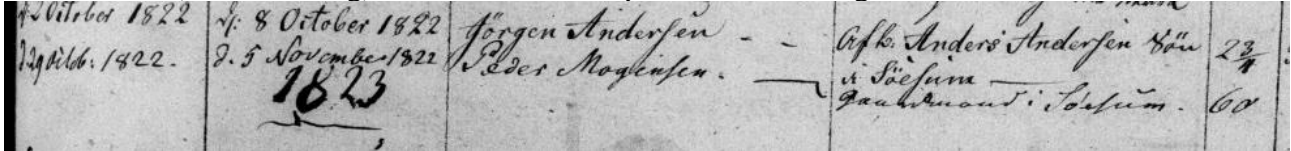 d. 2 October 1822 d. 8 October 1822 Jörgen Andersen - - Afk. Anders Andersen Sön 2 3/4
i Söesum
d. 29 Octb: 1822. d. 5 November 1822 Peder Mogensen. Gaardmand i Söesum. 60
1823